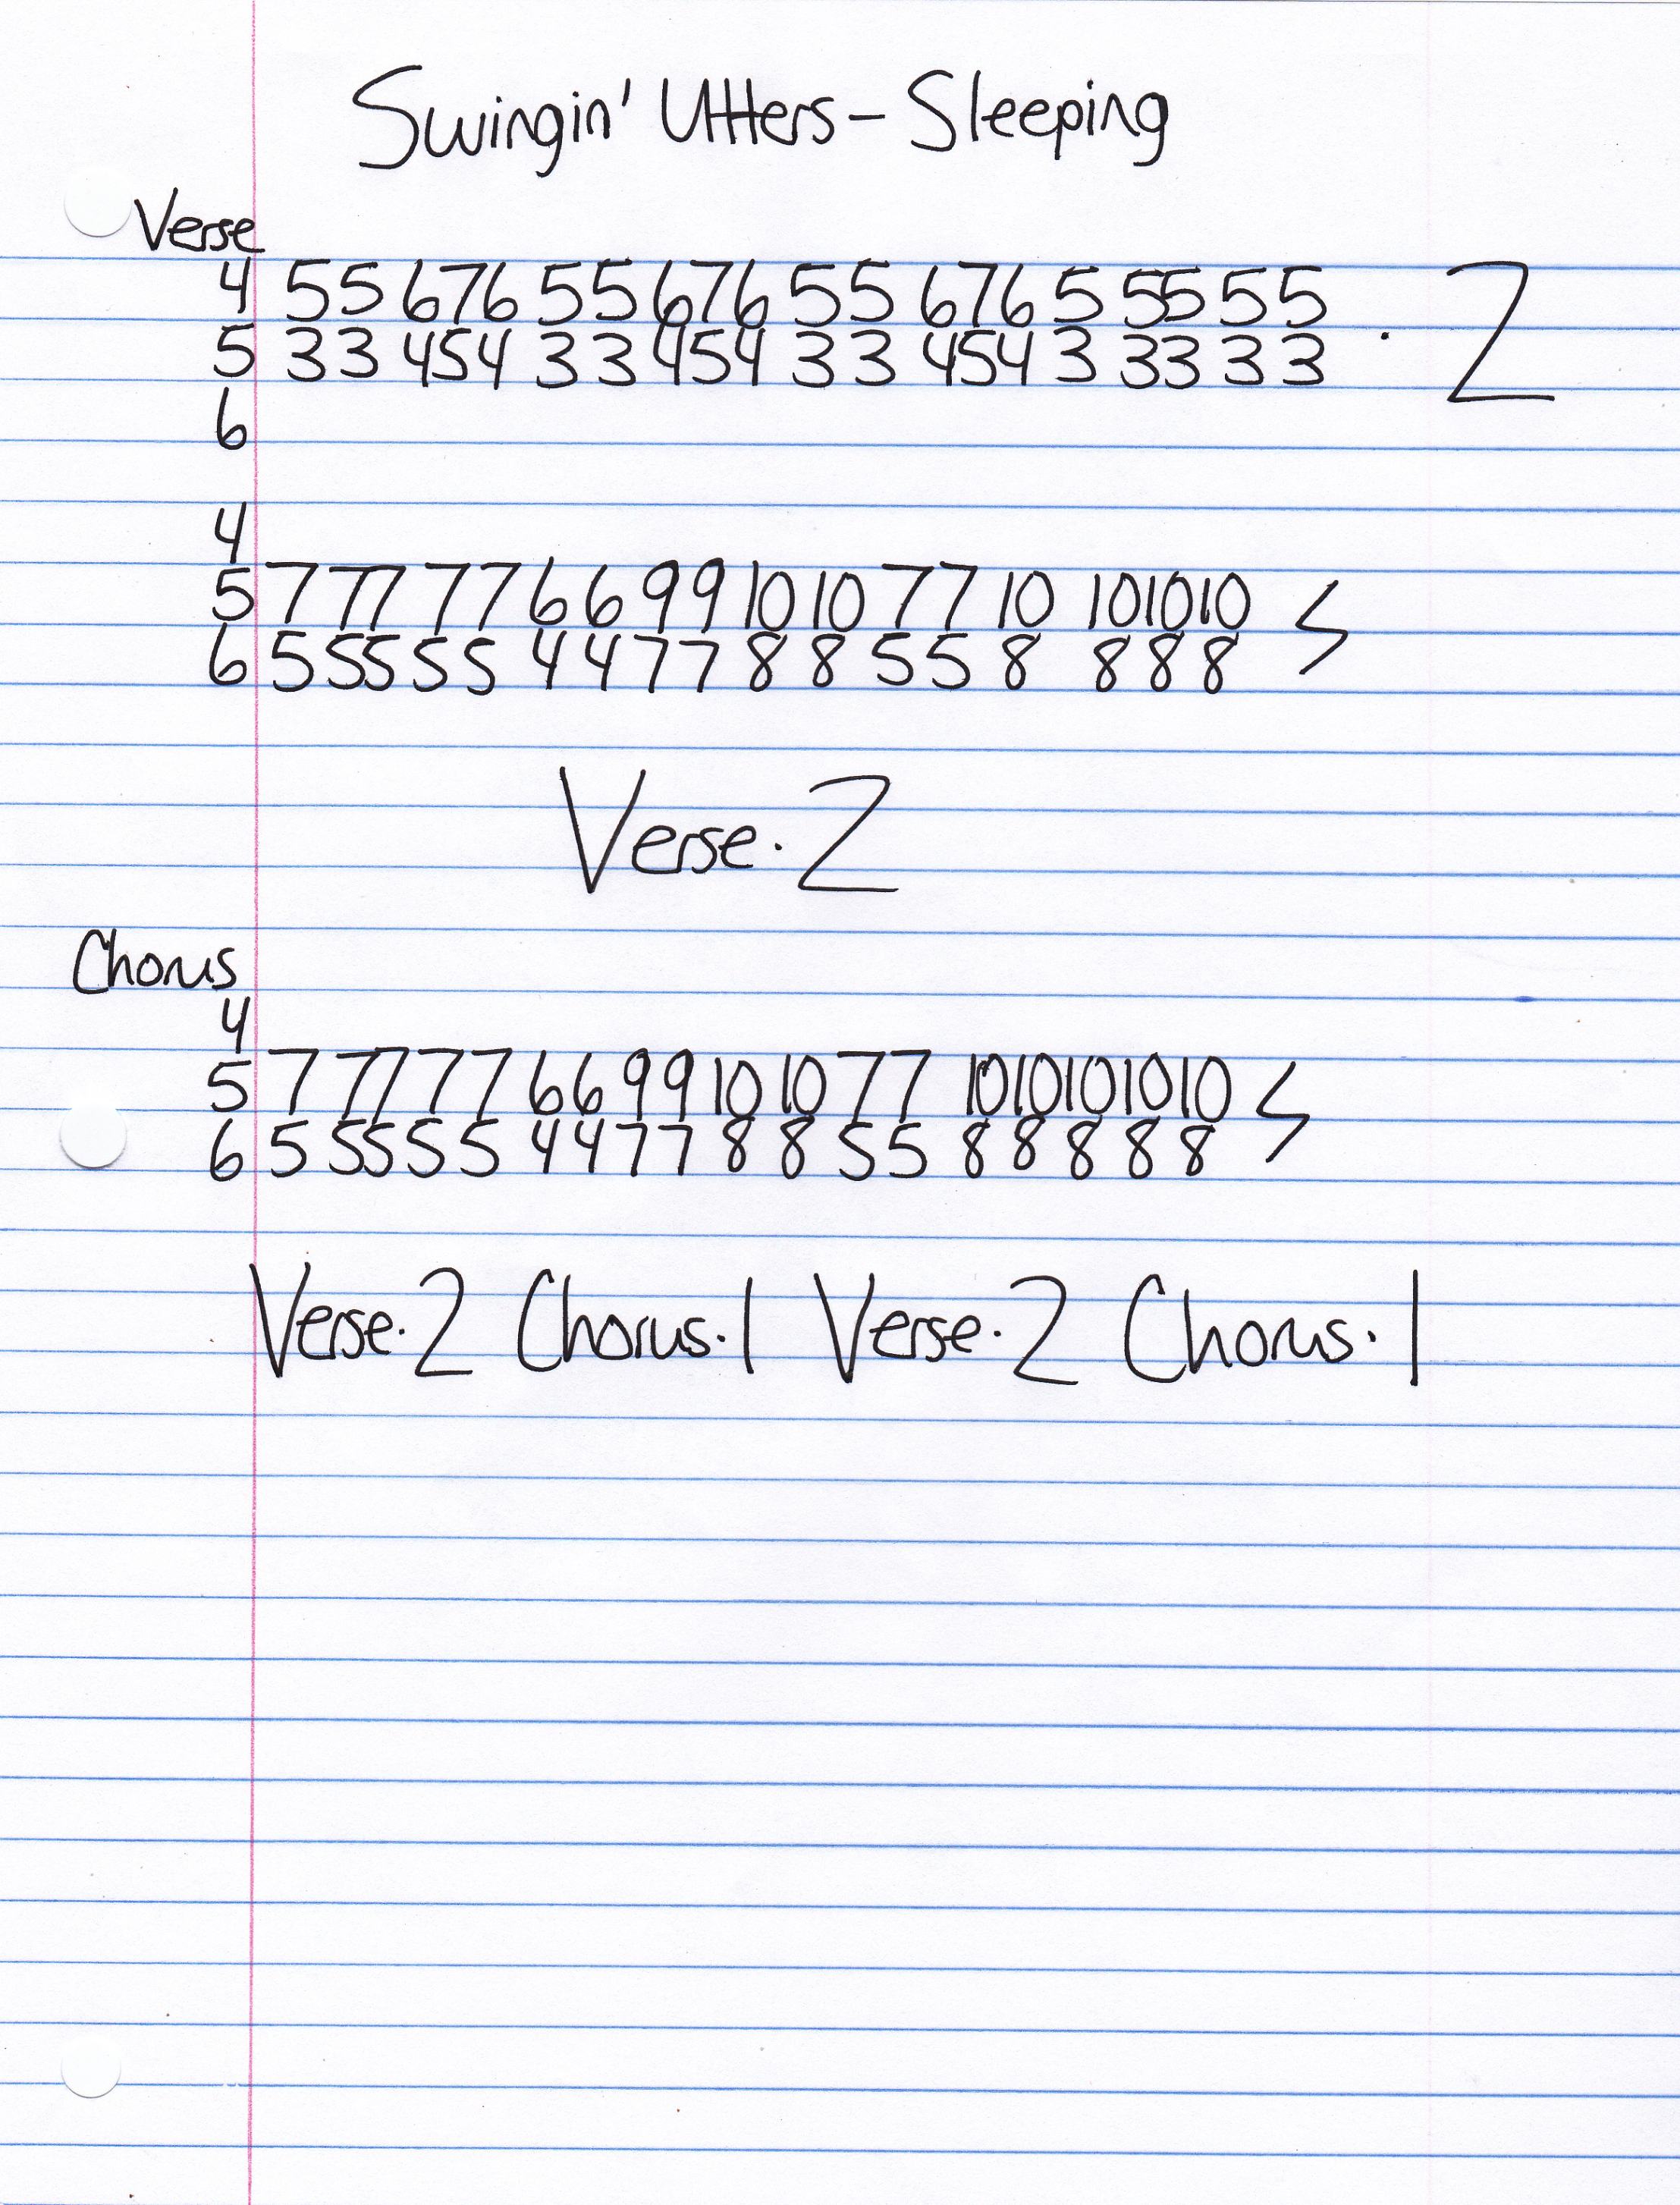 Swingin' Utters - Sleeping
Verse
4 5 5 6 7 6 5 5 6 7 6 5 5 6 7 6 5 5 5 5 5 · 2
5 3 3 4 5 4 3 3 4 5 4 3 3 4 5 4 3 3 3 3 3
6
4
5 7 7 7 7 7 6 6 9 9 10 10 7 7 10 10 10 10
6 5 5 5 5 5 4 4 7 7 8 8 5 5 8 8 8 8
Verse · 2
Chorus
4
5 7 7 7 7 7 6 6 9 9 10 10 7 7 10 10 10 10 10
6 5 5 5 5 5 4 4 7 7 8 8 5 5 8 8 8 8 8
Verse · 2 Chorus · 1 Verse · 2 Chorus · 1